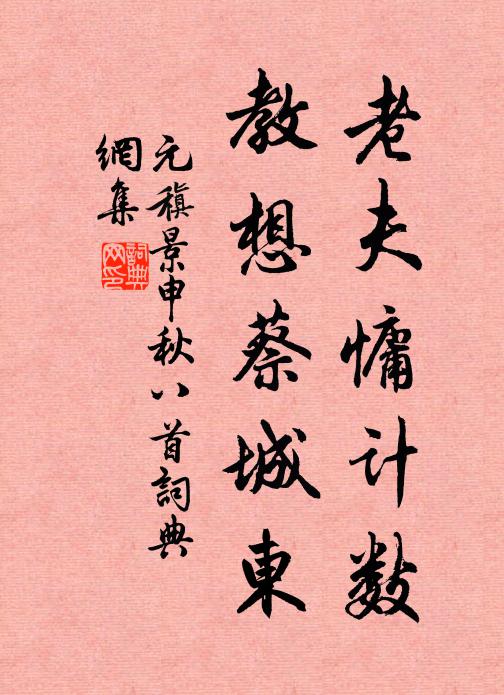 老夫慵计数
教想蔡城東
元稹景申秋八首詞典
網集
詞典
网印